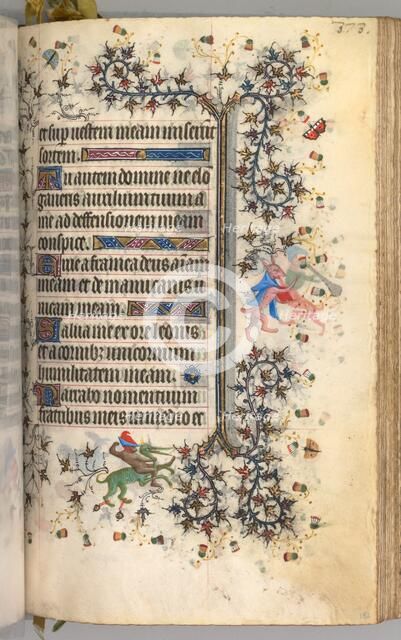 373.
et sup vestem meam miserūt
sortem.
Tu autem domine ne elo
gaueris auxilium tuum a
me ad deffensionem meam
conspice.
Erue a framea deus aīam
meam et de manu canis v
nicam meam.
Salua me ex ore leonis
et a cornibz unicornium
humilitatem meam.
Narrabo nomen tuum
fratribus meis in medio ec
Heritage
Heritage
Heritage
Heritage